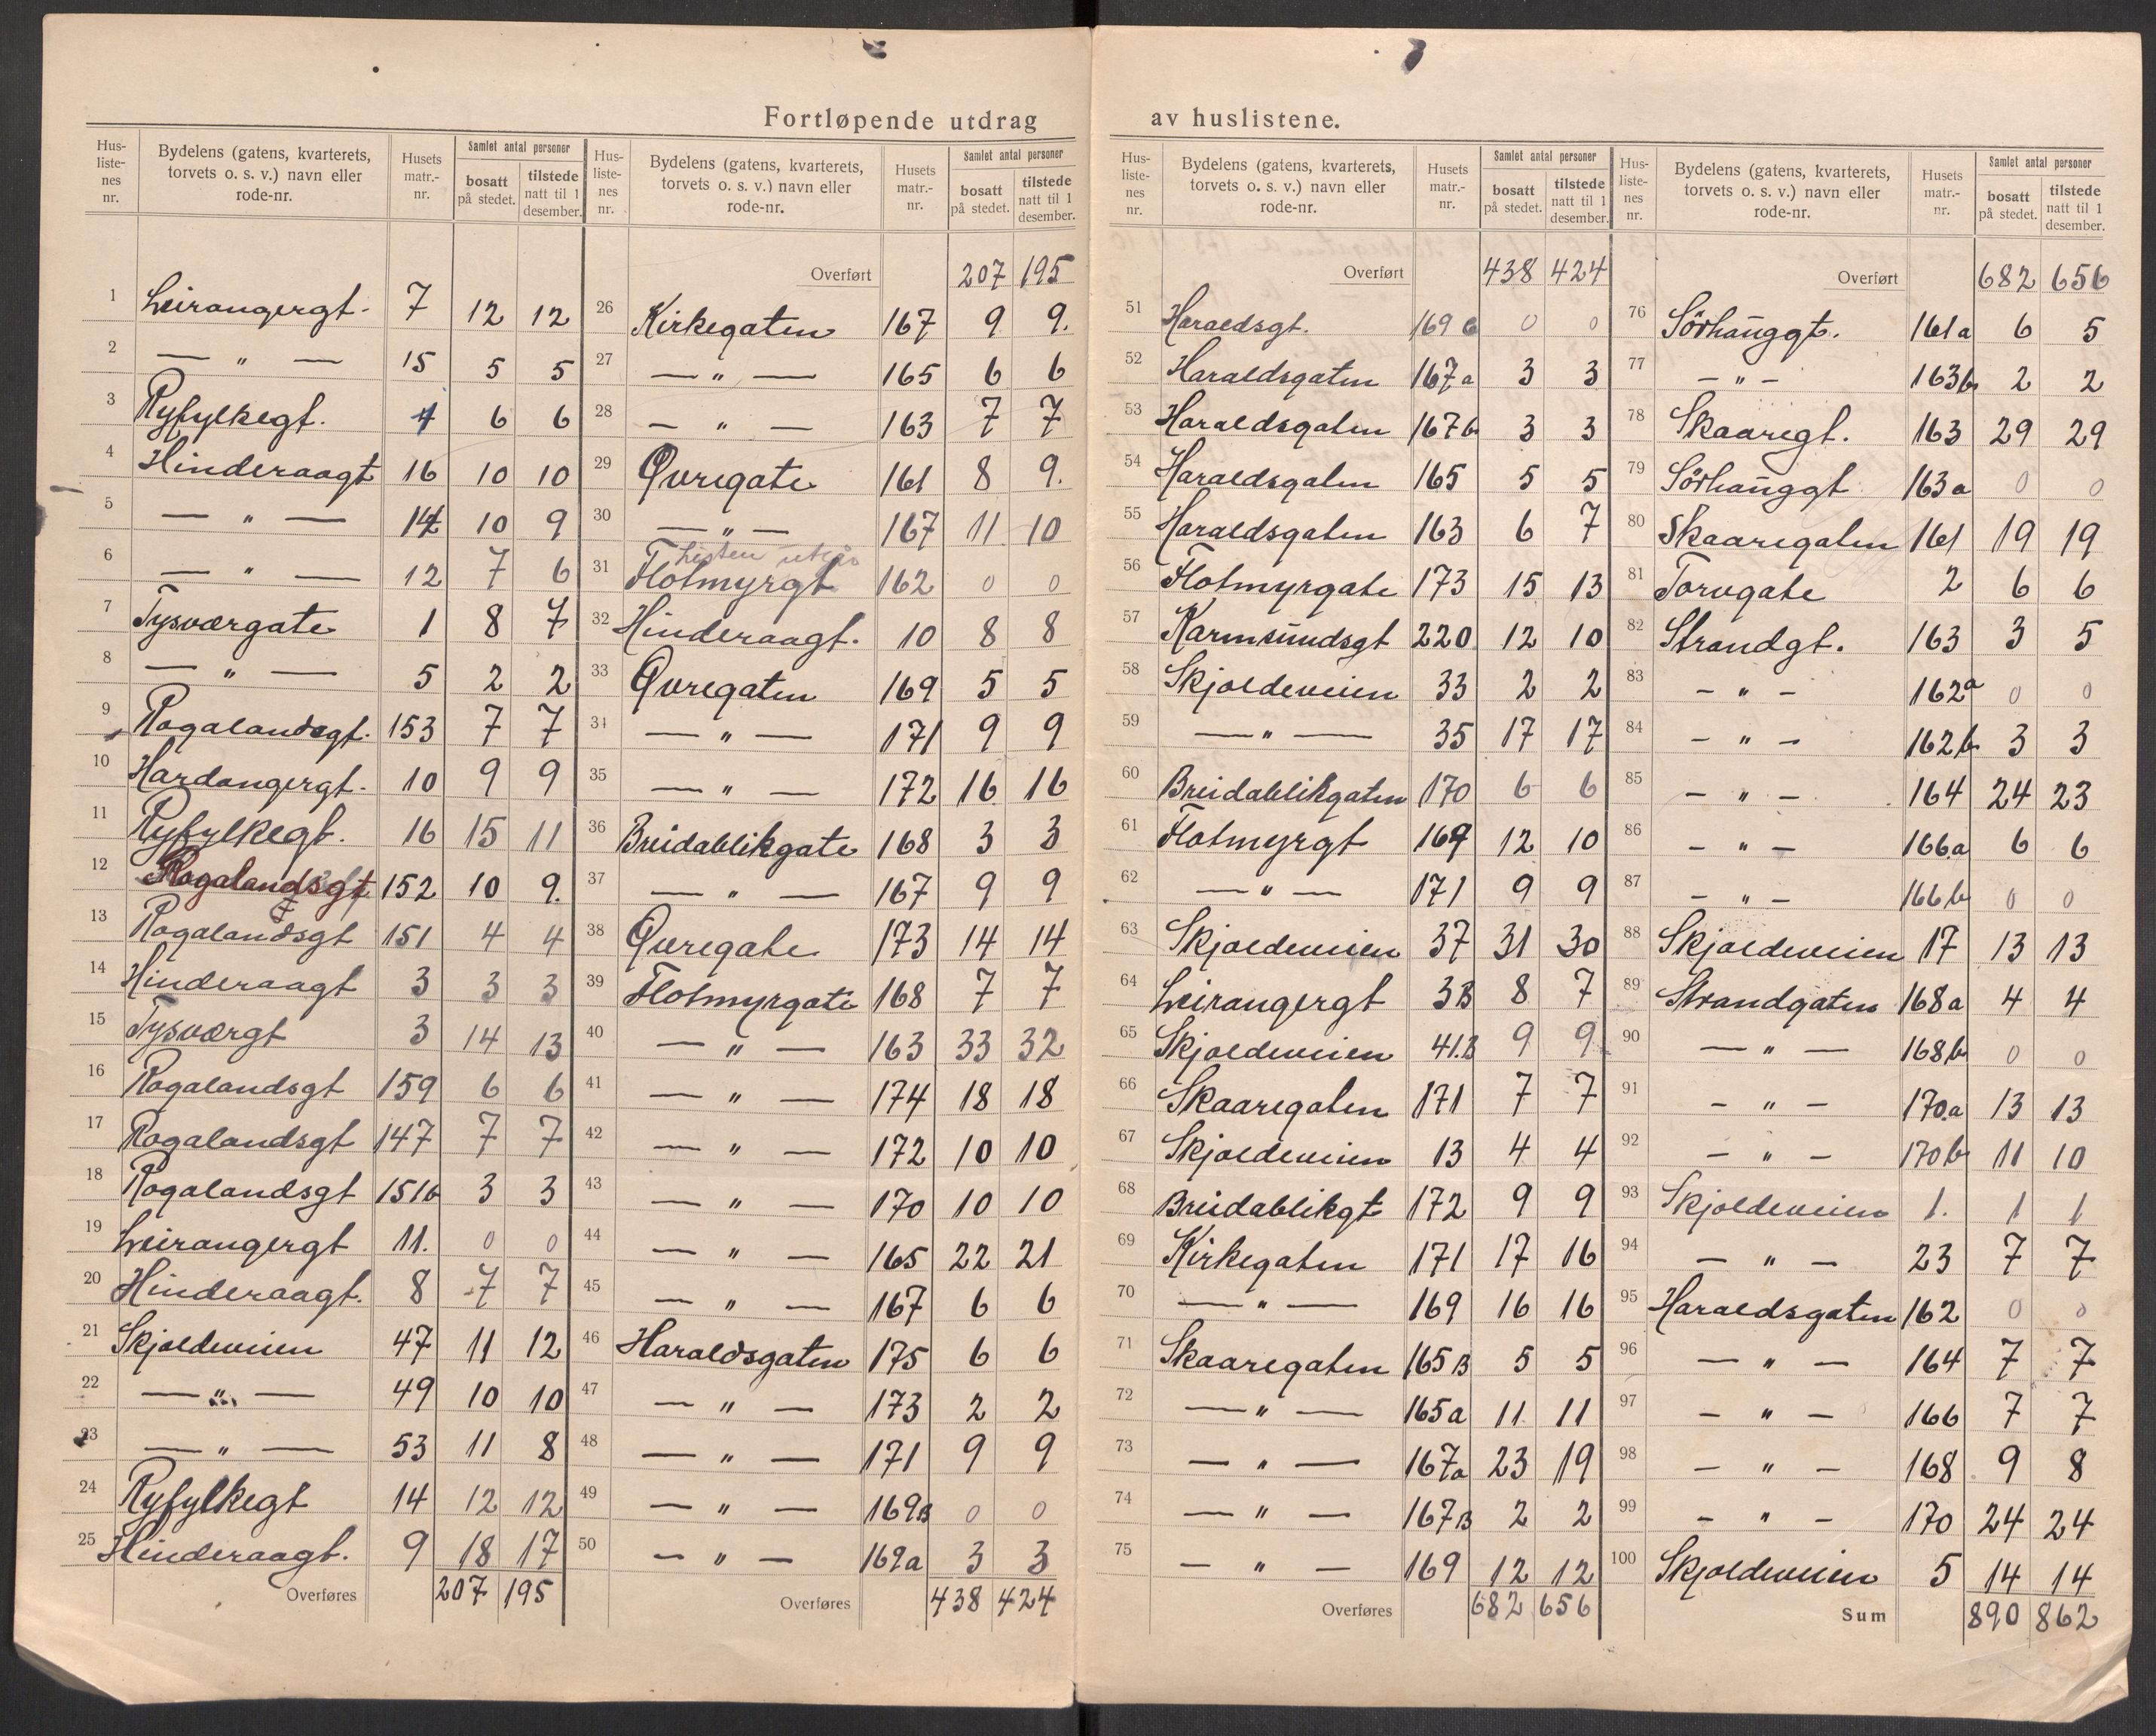 Fortløpende utdrag av huslistene.
Hus-liste-nes nr. | Bydelens (gatens, kvarterets, torvets o. s. v.) navn eller rode-nr. | Husets matr.-nr. | Samlet antal personer | bosatt på stedet. | tilstede natt til 1 desember.
1 Leirangergt. 7 12 12
2 — " — 15 5 5
3 Ryfylkegt. 4 6 6
4 Hinderaagt 16 10 10
5 — " — 14 10 9
6 — " — 12 7 6
7 Tysværgate 1 8 7
8 — " — 5 2 2
9 Rogalandsgt. 153 7 7
10 Hardangergt. 10 9 9
11 Ryfylkegt. 16 15 11
12 Rogalandsgt 152 10 9.
13 Rogalandsgt 151 4 4
14 Hinderaagt 3 3 3
15 Tysværgt 3 14 13
16 Rogalandsgt 159 6 6
17 Rogalandsgt 147 7 7
18 Rogalandsgt 151b 3 3
19 Leirangergt 11. 0 0
20 Hinderaagt. 8 7 7
21 Skjoldeveien 47 11 12
22 — " — 49 10 10
23 — " — 53 11 8
24 Ryfylkegt 14 12 12
25 Hinderaagt. 9 18 17
Overføres 207 195
Hus-liste-nes nr. | Bydelens (gatens, kvarterets, torvets o. s. v.) navn eller rode-nr. | Husets matr.-nr. | Samlet antal personer | bosatt på stedet. | tilstede natt til 1 desember.
Overført 207 195
26 Kirkegaten 167 9 9.
27 — " — 165 6 6
28 — " — 163 7 7
29 Øvregate 161 8 9.
30 — " — 167 11 10
Listen utgår
31 Flotmyrgt 162 0 0
32 Hinderaagt. 10 8 8
33 Øvregaten 169 5 5
34 — " — 171 9 9
35 — " — 172 16 16
36 Breidablikgate 168 3 3
37 — " — 167 9 9
38 Øvregate 173 14 14
39 Flotmyrgate 168 7 7
40 — " — 163 33 32
41 — " — 174 18 18
42 — " — 172 10 10
43 — " — 170 10 10
44 — " — 165 22 21
45 — " — 167 6 6
46 Haraldsgaten 175 6 6
47 — " — 173 2 2
48 — " — 171 9 9
49 — " — 169B 0 0
50 — " — 169a 3 3
Overføres 438 424
Hus-liste-nes nr. | Bydelens (gatens, kvarterets, torvets o. s. v.) navn eller rode-nr. | Husets matr.-nr. | Samlet antal personer | bosatt på stedet. | tilstede natt til 1 desember.
Overført 438 424
51 Haraldsgt. 169 0 0
52 Haraldsgaten 167a 3 3
53 Haraldsgaten 167b 3 3
54 Haraldsgaten 165 5 5
55 Haraldsgaten 163 6 7
56 Flotmyrgate 173 15 13
57 Karmsundsgt 220 12 10
58 Skjoldeveien 33 2 2
59 — " — 35 17 17
60 Breidablikgaten 170 6 6
61 Flotmyrgt 169 12 10
62 — " — 171 9 9
63 Skjoldeveien 37 31 30
64 Leirangergt 3B 8 7
65 Skjoldeveien 41.B 9 9
66 Skaaregaten 171 7 7
67 Skjoldeveien 13 4 4
68 Breidablikgt 172 9 9
69 Kirkegaten 171 17 16
70 — " — 169 16 16
71 Skaaregaten 165B 5 5
72 — " — 165a 11 11
73 — " — 167a 23 19
74 — " — 167B 2 2
75 — " — 169 12 12
Overføres 682 656
Hus-liste-nes nr. | Bydelens (gatens, kvarterets, torvets o. s. v.) navn eller rode-nr. | Husets matr.-nr. | Samlet antal personer | bosatt på stedet. | tilstede natt til 1 desember.
Overført 682 656
76 Sörhauggt. 161a 6 5
77 — " — 163b 2 2
78 Skaaregt. 163 29 29
79 Sörhauggt 163a 0 0
80 Skaaregaten 161 19 19
81 Torvgate 2 6 6
82 Strandgt. 163 3 5
83 — " — 162a 0 0
84 — " — 162b 3 3
85 — " — 164 24 23
86 — " — 166a 6 6
87 — " — 166b 0 0
88 Skjoldeveien 17 13 13
89 Strandgaten 168a 4 4
90 — " — 168b 0 0
91 — " — 170.a 13 13
92 — " — 170b 11 10
93 Skjoldeveien 1. 1 1
94 — " — 23 7 7
95 Haraldsgaten 162 0 0
96 — " — 164 7 7
97 — " — 166 7 7
98 — " — 168 9 8
99 — " — 170 24 24
100 Skjoldeveien 5 14 14
Sum 890 862